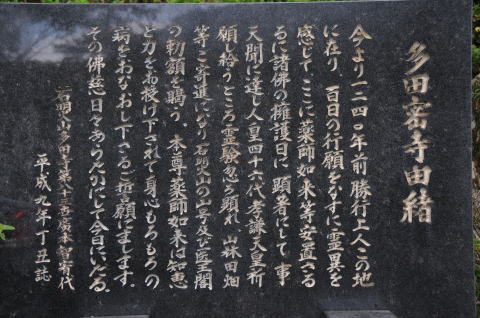 多田密寺由緒
今より一二四〇年前勝行上人この地
に在り、百日の行願をかすに霊異を
感じてここに薬師如来等安置さる
るに諸佛の擁護日に顕著にして事
天聞に達し人皇四十六代孝謙天皇祈
願し給うところ霊験忽ち顕れ山林田畑
等ご寄進になり石明火山の山号及び医王閣
の勅額を賜う。本尊薬師如来は知恵
と力をお授け下されて身心もろもろの
病をおなおし下さるご誓願にまします。
その佛慈日々あらたかにして今日にいたる。
多田寺第 世 本 有代
平成九年丁丑誌